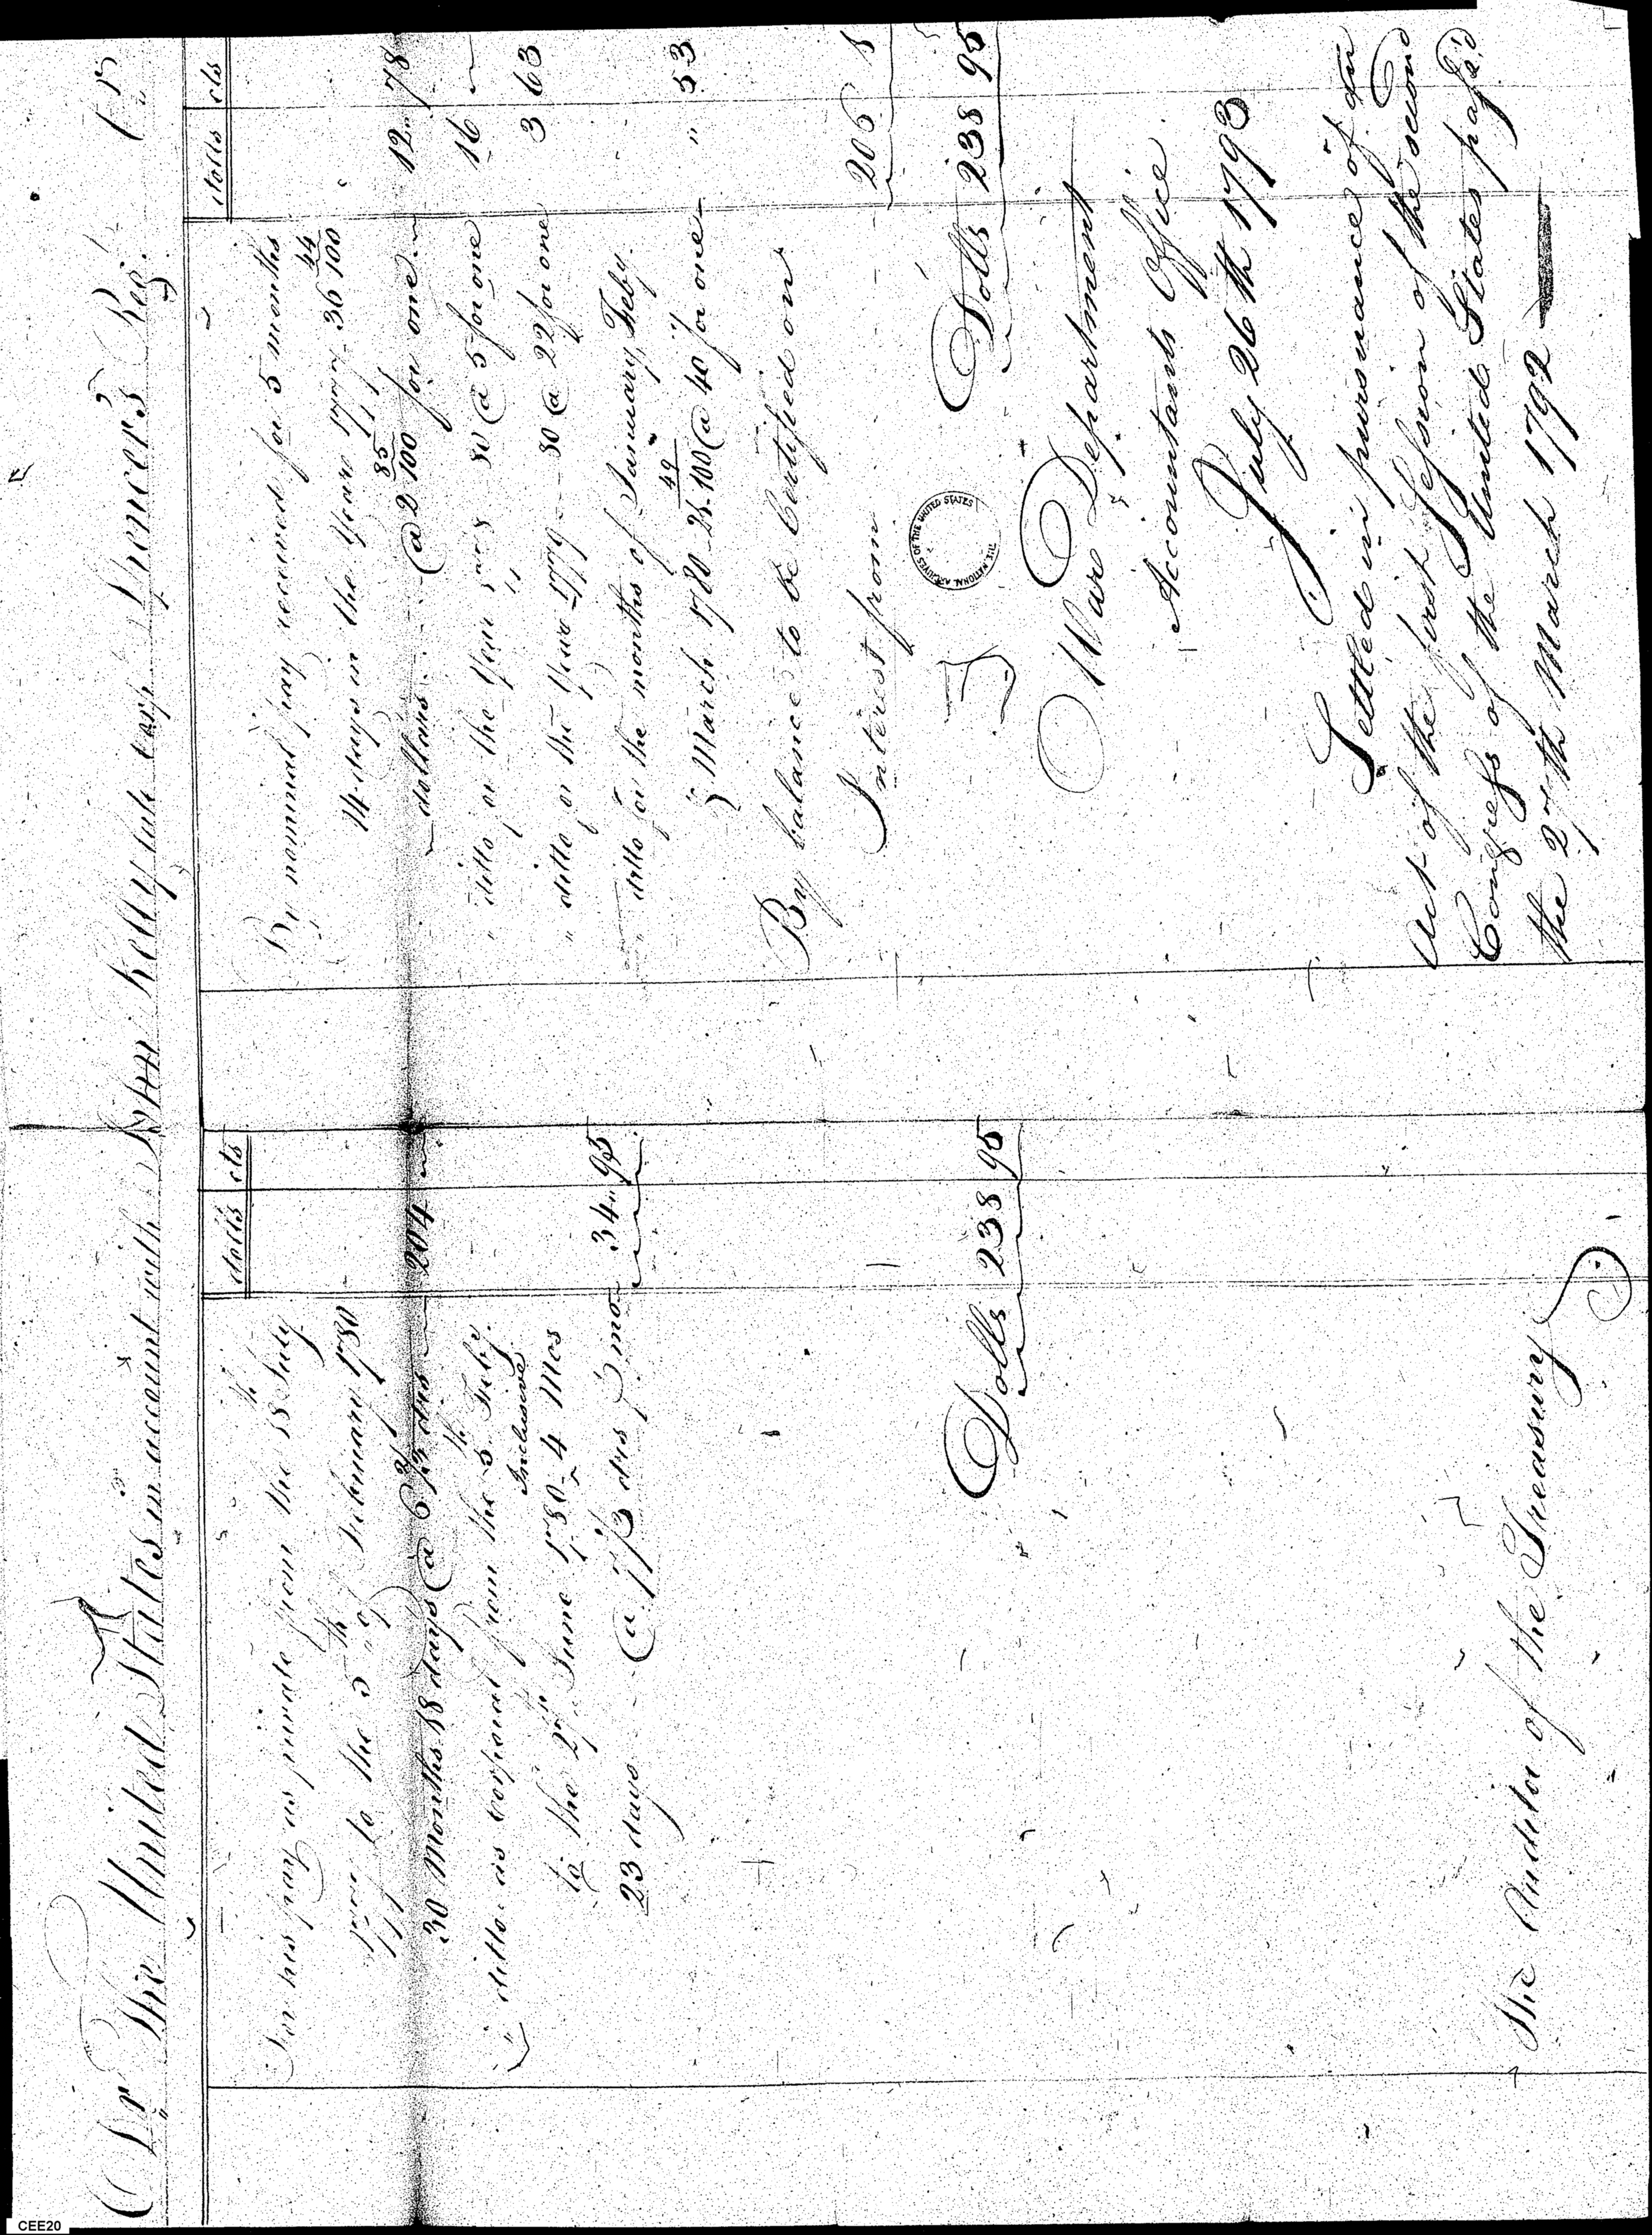 Dr The United States in account with Wm Kelly late corpl Spencer's Reg.t Cr
dolls cts
For his pay as private from the 18th July
1777 to the 5th of February 1780
30 Months 18 days @ 6 2/3 drs 204 "
" ditto as corporal from the 5th Feby.
to the 27th June 1780 Inclusive 4 Mos
23 days @ 7 1/3 drs P mo 34 " 95
Dolls 238 95
The Auditor of the Treasury
dolls cts
By nominal pay received for 5 months
14 days in the Year 1777 36 44/100
dollars @ 2 85/100 for one 12 " 78
" ditto for the Year 1778 80 @ 5 for one 16 "
" ditto for the Year 1779 80 @ 22 for one 3 63
" ditto for the months of January, Feby.
& March 1780 21 49/100 @ 40 for one " 53
By balance to be Certified on
Interest from 206 1
Dolls 238 95
THE NATIONAL ARCHIVES OF THE UNITED STATES
War Department
Accountants Office
July 26th 1793
Settled in pursuance of an
Act of the first Session of the second
Congress of the United States pass'd
the 27th March 1792
CEE20